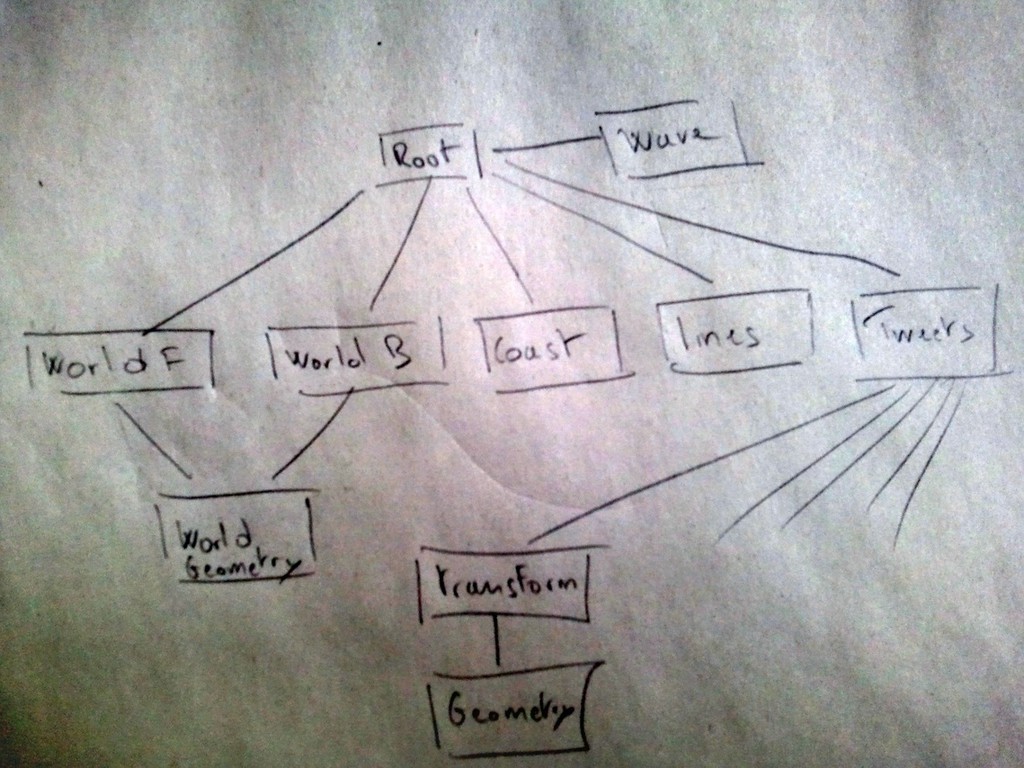 Root
Wave
World F
World B
Coast
lines
Tweets
World
Geometry
Transform
Geometry